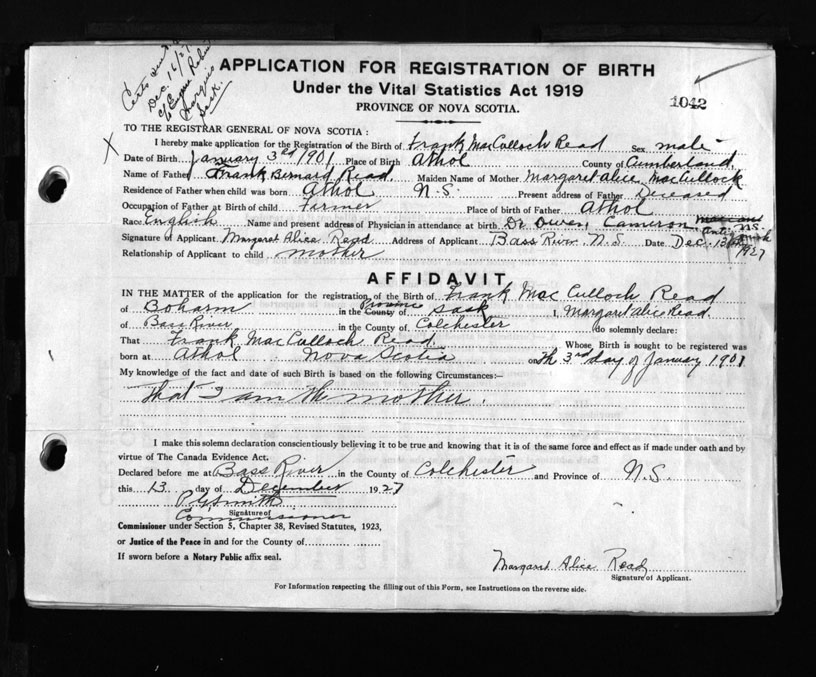 Dec. 16/27
Sask.
APPLICATION FOR REGISTRATION OF BIRTH
Under the Vital Statistics Act 1919
PROVINCE OF NOVA SCOTIA.
1042
TO THE REGISTRAR GENERAL OF NOVA SCOTIA:
I hereby make application for the Registration of the Birth of Frank MacCulloch Read Sex male
Date of Birth January 3rd 1901 Place of Birth Athol County of Cumberland.
Name of Father Frank Bernard Read. Maiden Name of Mother Margaret Alice MacCullock
Residence of Father when child was born Athol N.S. Present address of Father Deceased
Occupation of Father at Birth of child Farmer Place of birth of Father Athol
Race English Name and present address of Physician in attendance at birth Dr Owen Cameron N.S.
Signature of Applicant Margaret Alice Read Address of Applicant Bass River N.S. Date Dec. 13th 1927
Relationship of Applicant to child mother
AFFIDAVIT
IN THE MATTER of the application for the registration of the Birth of Frank Mac Culloch Read
of Boharm in the County of Province Sask I, Margaret Alice Read.
of Bass River in the County of Colchester do solemnly declare:
That Frank MacCulloch Read Whose Birth is sought to be registered was
born at Athol Nova Scotia on Th 3rd day of January 1901
My knowledge of the fact and date of such Birth is based on the following Circumstances:—
That I am the mother.
I make this solemn declaration conscientiously believing it to be true and knowing that it is of the same force and effect as if made under oath and by
virtue of The Canada Evidence Act.
Declared before me at Bass River in the County of Colchester and Province of N.S.
this 13 day of December 1927
Smith
Signature of
Commissioner
Commissioner under Section 5, Chapter 38, Revised Statutes, 1923,
or Justice of the Peace in and for the County of
If sworn before a Notary Public affix seal.
Margaret Alice Read
Signature of Applicant.
For Information respecting the filling out of this Form, see Instructions on the reverse side.